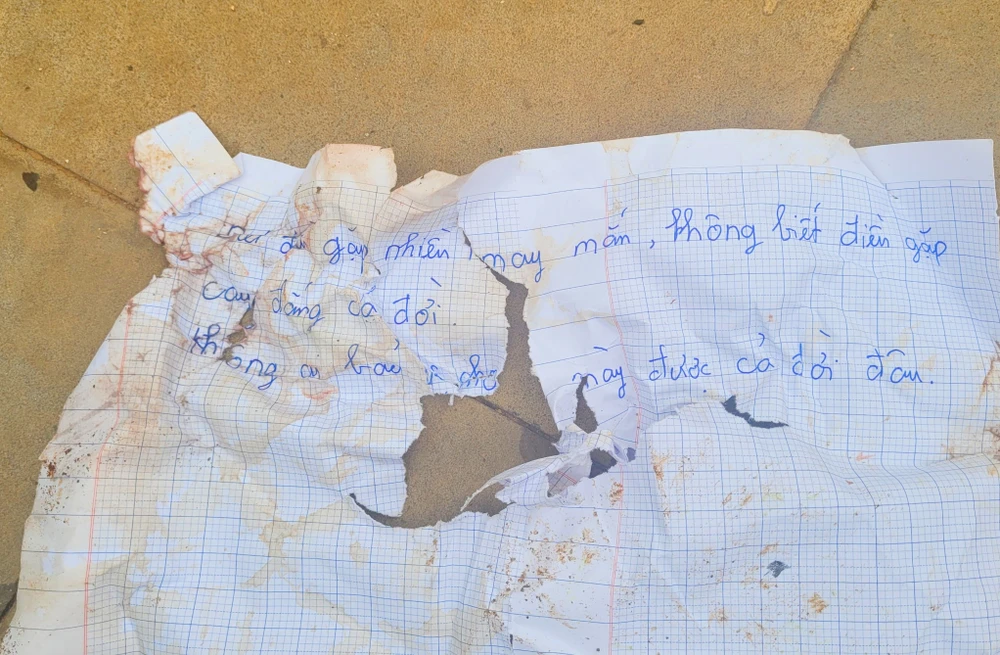 gặp nhiền may mắn, không biết điền gặp
cay đắng cả đời.
không ai như mày được cả đời đâu.